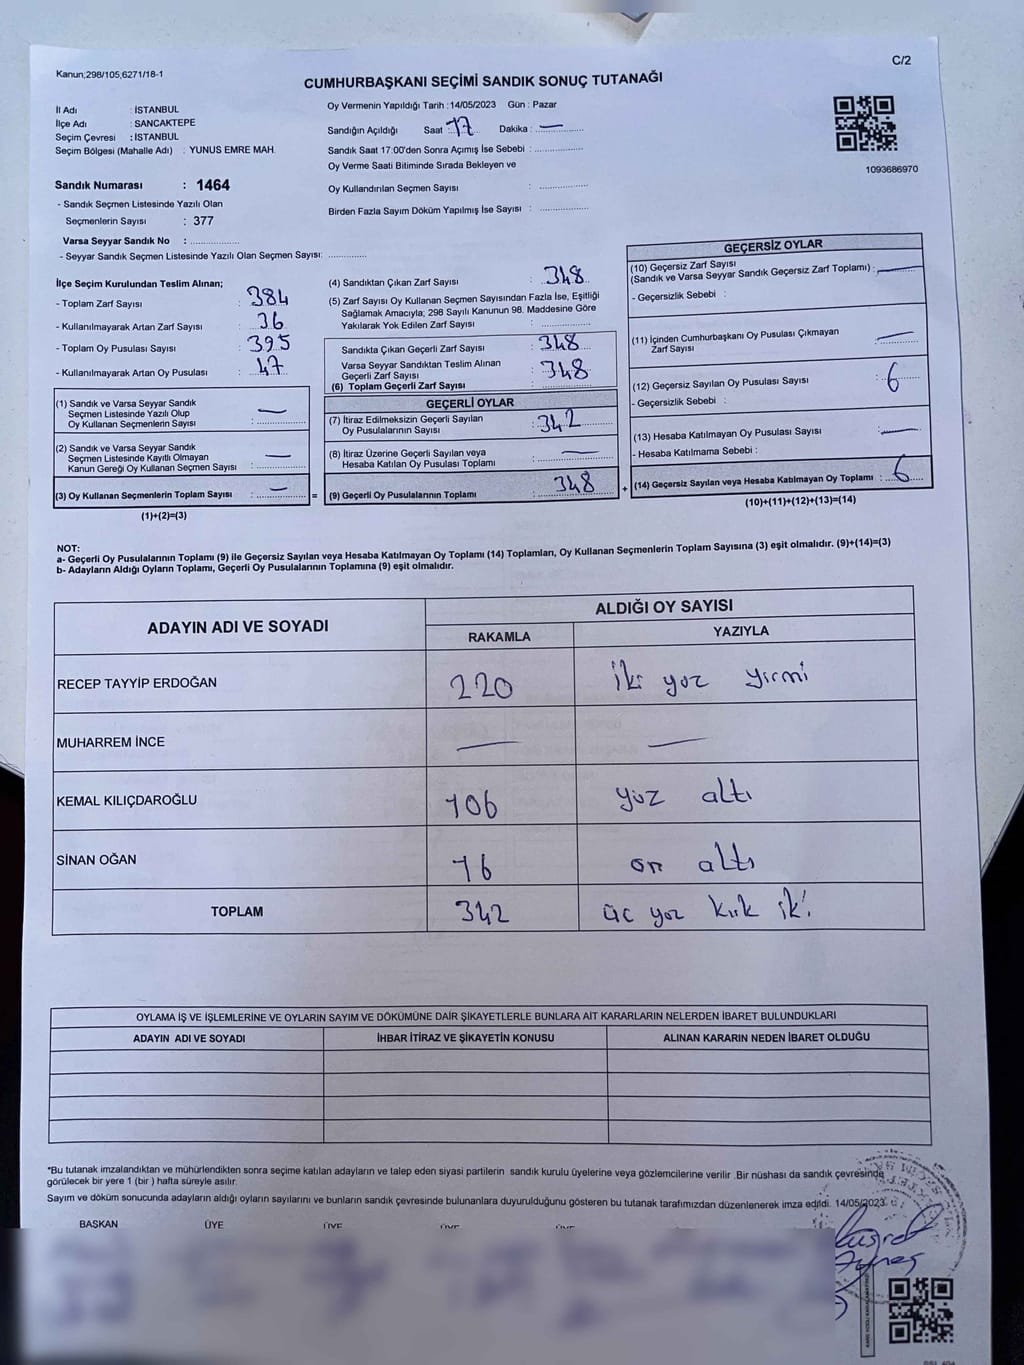 Kanun;298/105,6271/18-1
C/2
CUMHURBAŞKANI SEÇİMİ SANDIK SONUÇ TUTANAĞI
İl Adı : İSTANBUL
İlçe Adı : SANCAKTEPE
Seçim Çevresi : İSTANBUL
Seçim Bölgesi (Mahalle Adı) : YUNUS EMRE MAH.
Oy Vermenin Yapıldığı Tarih :14/05/2023 Gün : Pazar
Sandığın Açıldığı Saat : 17 Dakika : —
Sandık Saat 17:00'den Sonra Açımış İse Sebebi :
Oy Verme Saati Bitiminde Sırada Bekleyen ve
Oy Kullandırılan Seçmen Sayısı :
Birden Fazla Sayım Döküm Yapılmış İse Sayısı :
1093686970
Sandık Numarası : 1464
- Sandık Seçmen Listesinde Yazılı Olan
Seçmenlerin Sayısı : 377
Varsa Seyyar Sandık No :
- Seyyar Sandık Seçmen Listesinde Yazılı Olan Seçmen Sayısı:
İlçe Seçim Kurulundan Teslim Alınan;
- Toplam Zarf Sayısı : 384
- Kullanılmayarak Artan Zarf Sayısı : 36
- Toplam Oy Pusulası Sayısı : 395
- Kullanılmayarak Artan Oy Pusulası : 47
(1) Sandık ve Varsa Seyyar Sandık
Seçmen Listesinde Yazılı Olup
Oy Kullanan Seçmenlerin Sayısı : —
(2) Sandık ve Varsa Seyyar Sandık
Seçmen Listesinde Kayıtlı Olmayan
Kanun Gereği Oy Kullanan Seçmen Sayısı : —
(3) Oy Kullanan Seçmenlerin Toplam Sayısı : — =
(1)+(2)=(3)
(4) Sandıktan Çıkan Zarf Sayısı : 348
(5) Zarf Sayısı Oy Kullanan Seçmen Sayısından Fazla İse, Eşitliği
Sağlamak Amacıyla; 298 Sayılı Kanunun 98. Maddesine Göre
Yakılarak Yok Edilen Zarf Sayısı :
Sandıkta Çıkan Geçerli Zarf Sayısı : 348
Varsa Seyyar Sandıktan Teslim Alınan
Geçerli Zarf Sayısı : 348
(6) Toplam Geçerli Zarf Sayısı :
GEÇERLİ OYLAR
(7) İtiraz Edilmeksizin Geçerli Sayılan
Oy Pusulalarının Sayısı : 342
(8) İtiraz Üzerine Geçerli Sayılan veya
Hesaba Katılan Oy Pusulası Toplamı : —
(9) Geçerli Oy Pusulalarının Toplamı : 348 +
GEÇERSİZ OYLAR
(10) Geçersiz Zarf Sayısı
(Sandık ve Varsa Seyyar Sandık Geçersiz Zarf Toplamı) : —
- Geçersizlik Sebebi :
(11) İçinden Cumhurbaşkanı Oy Pusulası Çıkmayan
Zarf Sayısı : —
(12) Geçersiz Sayılan Oy Pusulası Sayısı : 6
- Geçersizlik Sebebi :
(13) Hesaba Katılmayan Oy Pusulası Sayısı : —
- Hesaba Katılmama Sebebi :
(14) Geçersiz Sayılan veya Hesaba Katılmayan Oy Toplamı : 6
(10)+(11)+(12)+(13)=(14)
NOT:
a- Geçerli Oy Pusulalarının Toplamı (9) ile Geçersiz Sayılan veya Hesaba Katılmayan Oy Toplamı (14) Toplamları, Oy Kullanan Seçmenlerin Toplam Sayısına (3) eşit olmalıdır. (9)+(14)=(3)
b- Adayların Aldığı Oyların Toplamı, Geçerli Oy Pusulalarının Toplamına (9) eşit olmalıdır.
ADAYIN ADI VE SOYADI
ALDIĞI OY SAYISI
RAKAMLA YAZIYLA
RECEP TAYYİP ERDOĞAN 220 iki yüz yirmi
MUHARREM İNCE — —
KEMAL KILIÇDAROĞLU 106 yüz altı
SİNAN OĞAN 16 on altı
TOPLAM 342 üç yüz kırk iki
OYLAMA İŞ VE İŞLEMLERİNE VE OYLARIN SAYIM VE DÖKÜMÜNE DAİR ŞİKAYETLERLE BUNLARA AİT KARARLARIN NELERDEN İBARET BULUNDUKLARI
ADAYIN ADI VE SOYADI İHBAR İTİRAZ VE ŞİKAYETİN KONUSU ALINAN KARARIN NEDEN İBARET OLDUĞU
*Bu tutanak imzalandıktan ve mühürlendikten sonra seçime katılan adayların ve talep eden siyasi partilerin sandık kurulu üyelerine veya gözlemcilerine verilir .Bir nüshası da sandık çevresinde
görülecek bir yere 1 (bir ) hafta süreyle asılır.
Sayım ve döküm sonucunda adayların aldığı oyların sayılarını ve bunların sandık çevresinde bulunanlara duyurulduğunu gösteren bu tutanak tarafımızdan düzenlenerek imza edildi. 14/05/2023
BAŞKAN ÜYE ÜYE ÜYE ÜYE